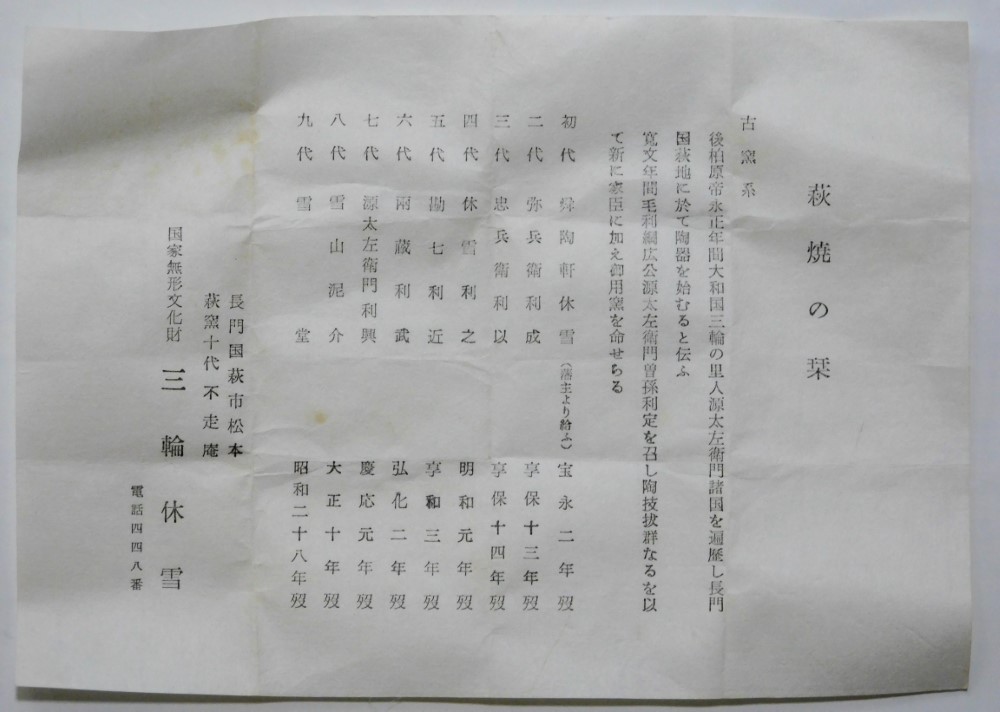 萩焼の栞
古窯系
後柏原帝永正年間大和国三輪の里人源太左衛門諸国を遍歴し長門
国萩地に於て陶器を始むると伝ふ
寛文年間毛利綱広公源太左衛門曽孫利定を召し陶技抜群なるを以
て新に家臣に加え御用窯を命せらる
初代 舜陶軒休雪（藩主より給ふ） 宝永二年歿
二代 弥兵衛利成 享保十三年歿
三代 忠兵衛利以 享保十四年歿
四代 休雪利之 明和元年歿
五代 勘七利近 享和三年歿
六代 兩蔵利武 弘化二年歿
七代 源太左衛門利興 慶応元年歿
八代 雪山泥介 大正十年歿
九代 雪堂 昭和二十八年歿
長門国萩市松本
萩窯十代不走庵
国家無形文化財 三輪休雪
電話四四八番